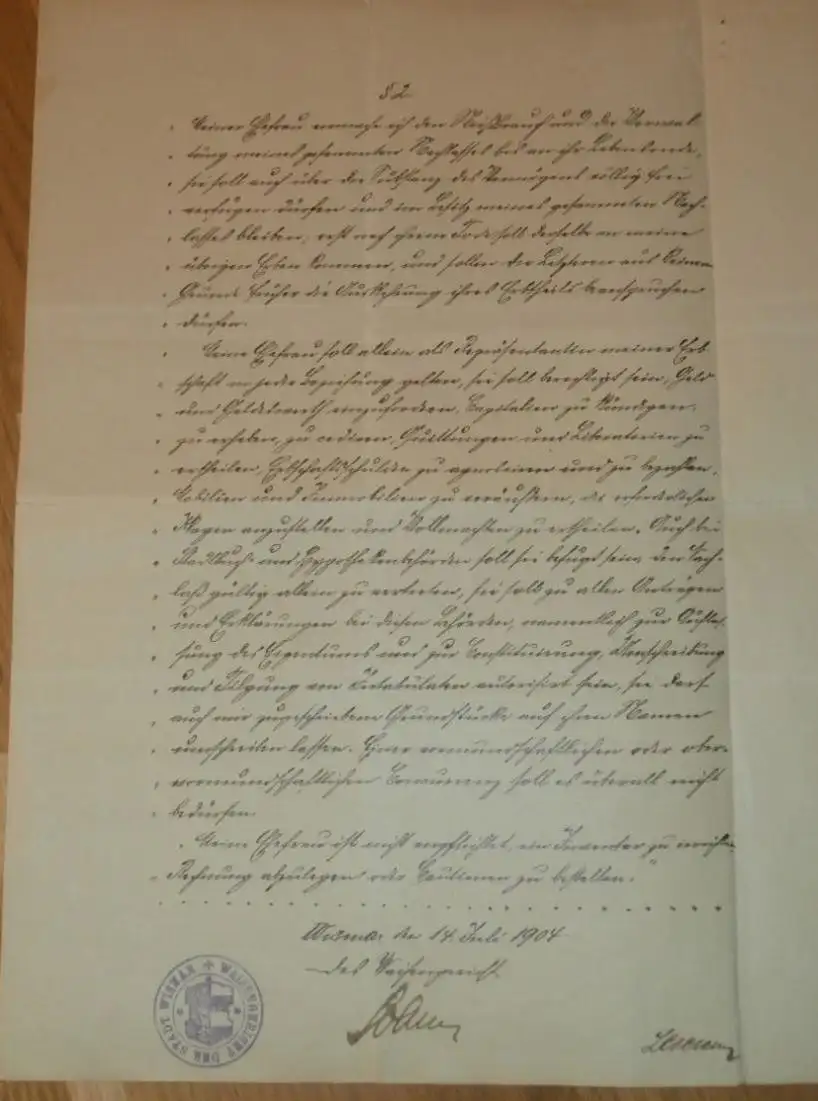 § 2.
" Meiner Ehefrau vermache ich den Nießbrauch und die Verwal-
" tung meines gesammten Nachlasses bis an ihr Lebensende,
" sie soll auch über die Substanz des Vermögens völlig frei
" verfügen dürfen und im Besitz meines gesammten Nach-
" lasses bleiben, erst nach ihrem Tode soll derselbe an meine
" übrigen Erben kommen, und sollen die Letzteren aus keinem
" Grunde früher die Auskehrung ihres Erbtheils beanspruchen
" dürfen.
" Meine Ehefrau soll allein als Repräsentantin meiner Erb-
" schaft in jeder Beziehung gelten, sie soll berechtigt sein, Geld
" und Geldeswerth einzufordern, Capitalien zu kündigen,
" zu erheben, zu cediren, Quittungen und Liberatorien zu
" ertheilen, Erbschaftsschulden zu agnosciren und zu bezahlen,
" Mobilien und Immobilien zu veräußern, die erforderlichen
" Klagen anzustellen und Vollmachten zu ertheilen. Auch bei
" Stadtbuch- und Hypothekenbehörden soll sie befugt sein, den Nach-
" laß gültig allein zu vertreten, sie soll zu allen Anträgen
" und Erklärungen bei diesen Behörden, namentlich zur Auflas-
" sung des Eigentums und zur Constituirung, Umschreibung
" und Tilgung von Intabulaten autorisirt sein, sie darf
" auch mir zugeschriebene Grundstücke auf ihren Namen
" umschreiben lassen. Einer vormundschaftlichen oder ober-
" vormundschaftlichen Concurrenz soll es überall nicht
" bedürfen.
" Meine Ehefrau ist nicht verpflichtet, ein Inventar zu errichten,
" Rechnung abzulegen oder Cautionen zu bestellen. "
Wismar den 14. Juli 1904
Das Waisengericht.
WAISENGERICHT DER STADT WISMAR